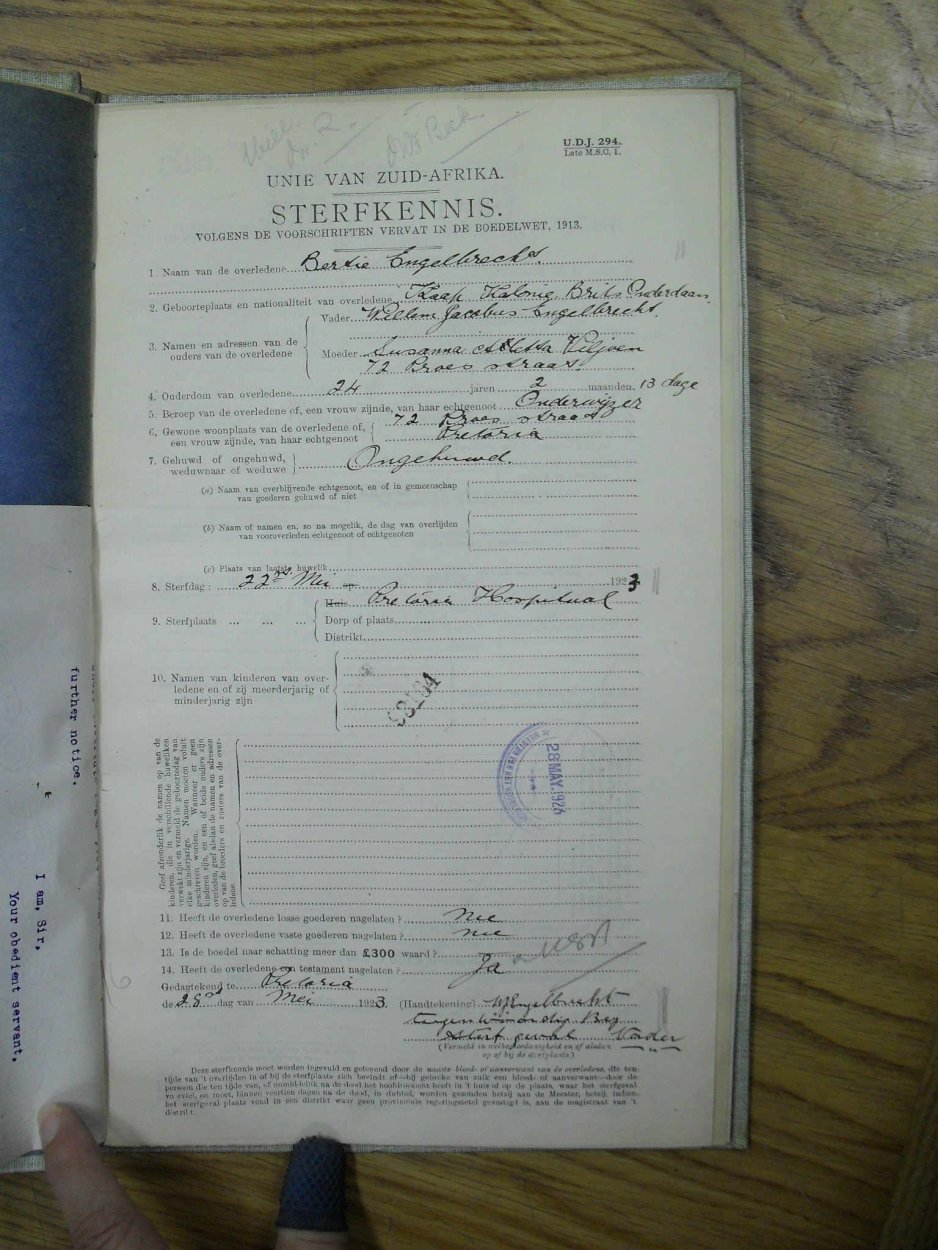 U.D.J. 294.
Late M.S.C. 1.
UNIE VAN ZUID-AFRIKA.
STERFKENNIS.
VOLGENS DE VOORSCHRIFTEN VERVAT IN DE BOEDELWET, 1913.
1. Naam van de overledene Bertie Engelbrecht
2. Geboorteplaats en nationaliteit van overledene Kaap Kolonie Brits Onderdaan
3. Namen en adressen van de ouders van de overledene
Vader Willem Jacobus Engelbrecht
Moeder Susanna Aletta Viljoen
72 Proes straat
4. Ouderdom van overledene 24 jaren 2 maanden. 13 dage
5. Beroep van de overledene of, een vrouw zijnde, van haar echtgenoot Onderwijzer
6. Gewone woonplaats van de overledene of, een vrouw zijnde, van haar echtgenoot
72 Proes straat
Pretoria
7. Gehuwd of ongehuwd, weduwnaar of weduwe Ongehuwd.
(a) Naam van overblijvende echtgenoot, en of in gemeenschap
van goederen gehuwd of niet
(b) Naam of namen en, zo na mogelik, de dag van overlijden
van vooroverleden echtgenoot of echtgenoten
(c) Plaats van laatste huwelik
8. Sterfdag: 22ste Mei op 1923
9. Sterfplaats ... ... ...
Huis Pretoria Hospitaal
Dorp of plaats
Distrikt
10. Namen van kinderen van over-
ledene en of zij meerderjarig of
minderjarig zijn
28 MAY. 1923
Geef afzonderlik de namen op van de
kinderen, die in verschillende huweliken
verwekt zijn en vermeld de geboortedag van
elke minderjarige. Namen moeten voluit
geschreven worden. Wanneer er geen
kinderen zijn, en een of beide ouders zijn
overleden, geef alsdan de namen en adressen
op van de broeders en zusters van de over-
ledene.
11. Heeft de overledene losse goederen nagelaten? nee
12. Heeft de overledene vaste goederen nagelaten? nee
13. Is de boedel naar schatting meer dan £300 waard?
14. Heeft de overledene een testament nagelaten? Ja
Gedagtekend te Pretoria
de 28ste dag van Mei 1923. (Handtekening) WJEngelbrecht
Vader
(Vermeld in welke hoedanigheid en of aldaar
op of bij de sterfplaats)
Deze sterfkennis moet worden ingevuld en getekend door de naaste bloed- of aanverwant van de overledene, die ten
tijde van 't overlijden in of bij de sterfplaats zich bevindt of—bij gebreke van zulk een bloed- of aanverwant—door de
persoon die ten tijde van, of onmiddellik na de dood het hoofdtoezicht heeft in 't huis of op de plaats, waar het sterfgeval
voorviel, en moet, binnen veertien dagen na de dood, in dubbel, worden gezonden hetzij aan de Meester, hetzij, indien
het sterfgeval plaats vond in een distrikt waar geen provinciale regeringszetel gevestigd is, aan de magistraat van 't
distrikt.
further notice.
I am, Sir,
Your obedient servant,